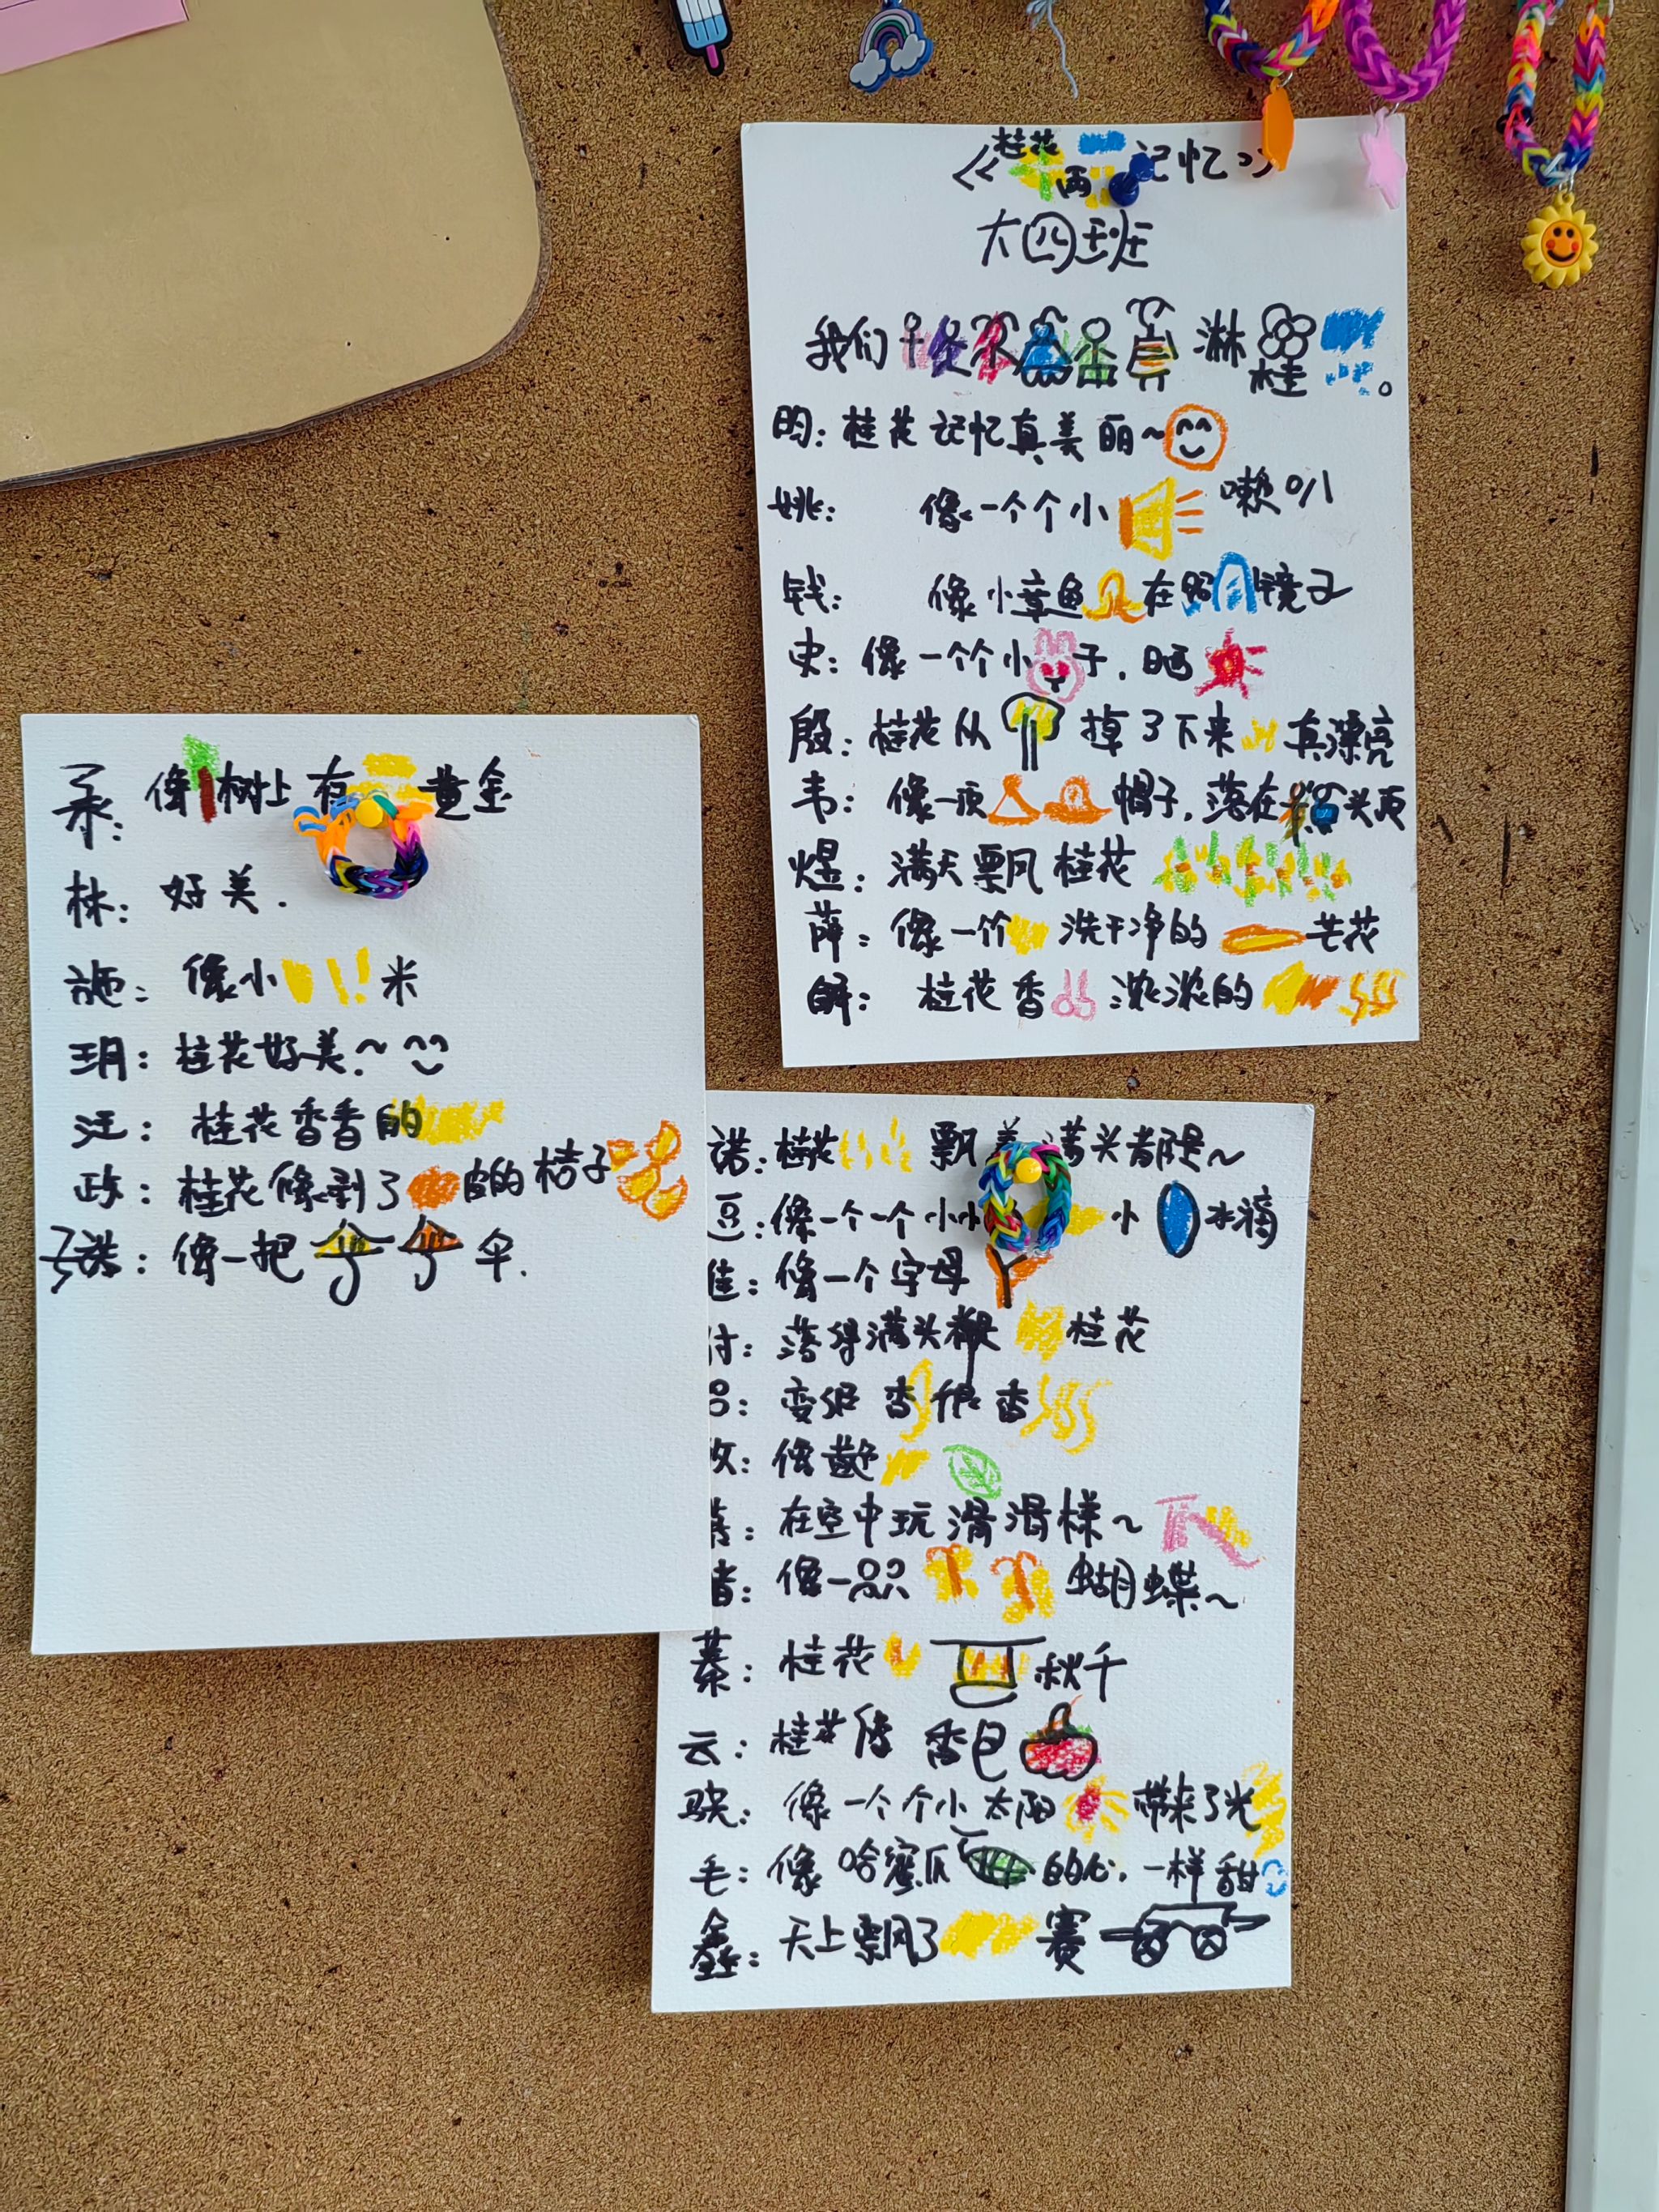 《桂花雨记忆》
大四班
我们淋桂。
昀：桂花记忆真美丽~
姚：像一个个小喇叭
钱：像小章鱼在照镜子
史：像一个个小子，晒
殷：桂花从掉了下来真漂亮
韦：像一顶帽子，落在头顶
煜：满天飘桂花
薛：像一个洗干净的芒花
解：桂花香浓浓的
像树上有黄金
林：好美.
施：像小米
玥：桂花好美.~
汪：桂花香香的
政：桂花像剥了皮的桔子
像一把伞.
诺：桂花飘着满头都是~
豆：像一个一个小小小水滴
佳：像一个字母Y
付：落得满头都是桂花
变得香很香
像黄色
在空中玩滑滑梯~
像一只只蝴蝶~
蓁：桂花秋千
云：桂花像香包
骁：像一个个小太阳带来了光
毛：像哈蜜瓜的心，一样甜
鑫：天上飘了赛